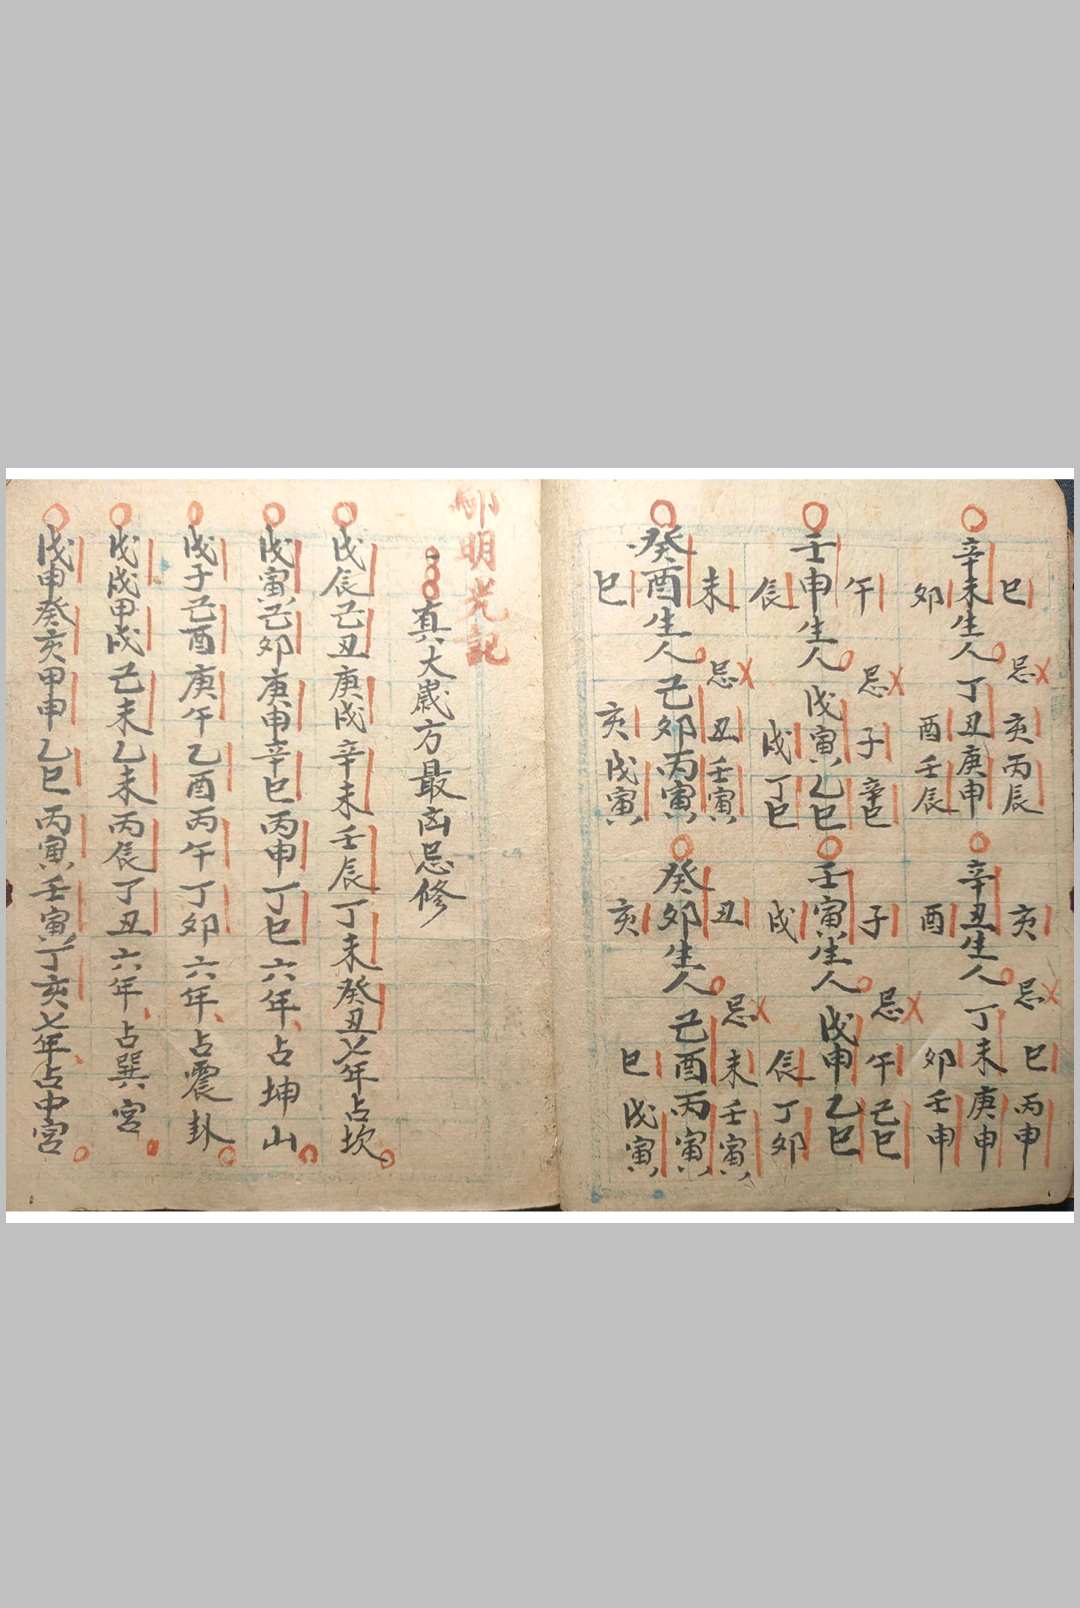 巳
辛未生人
卯
忌亥丙辰
丁丑庚申
酉壬辰
亥
辛丑生人
酉
忌巳丙申
丁未庚申
卯壬申
午
壬申生人
辰
忌子辛巳
戊寅乙巳
戌丁巳
子
壬寅生人
戌
忌午己巳
戊申乙巳
辰丁卯
未
癸酉生人
巳
忌丑壬寅
己卯丙寅
亥戊寅
丑
癸卯生人
亥
忌未壬寅
己酉丙寅
巳戊寅
明光記
真大歲方最凶忌修
戊辰己丑庚戌辛未壬辰丁未癸丑七年占坎
戊寅己卯庚申辛巳丙申丁巳六年占坤山
戊子己酉庚午乙酉丙午丁卯六年占震卦
戊戌甲戌己未乙未丙辰丁丑六年占巽宮
戊申癸亥甲申乙巳丙寅壬寅丁亥七年占中宮